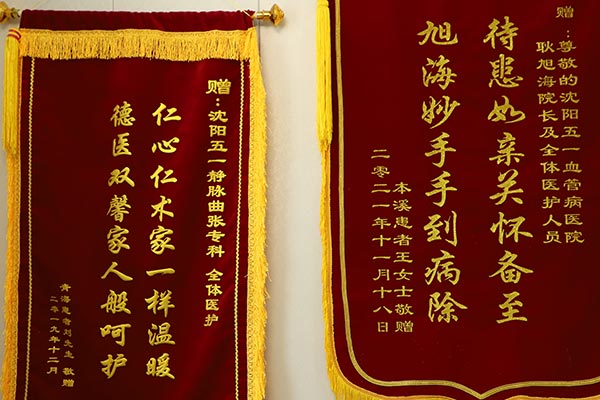 赠：沈阳五一静脉曲张专科 全体医护
仁心仁术家一样温暖
德医双馨家人般呵护
青海患者刘先生 敬赠
二零一九年十二月
赠：尊敬的沈阳五一血管病医院
耿旭海院长及全体医护人员
待患如亲关怀备至
旭海妙手手到病除
本溪患者王女士敬赠
二零二一年十一月十八日